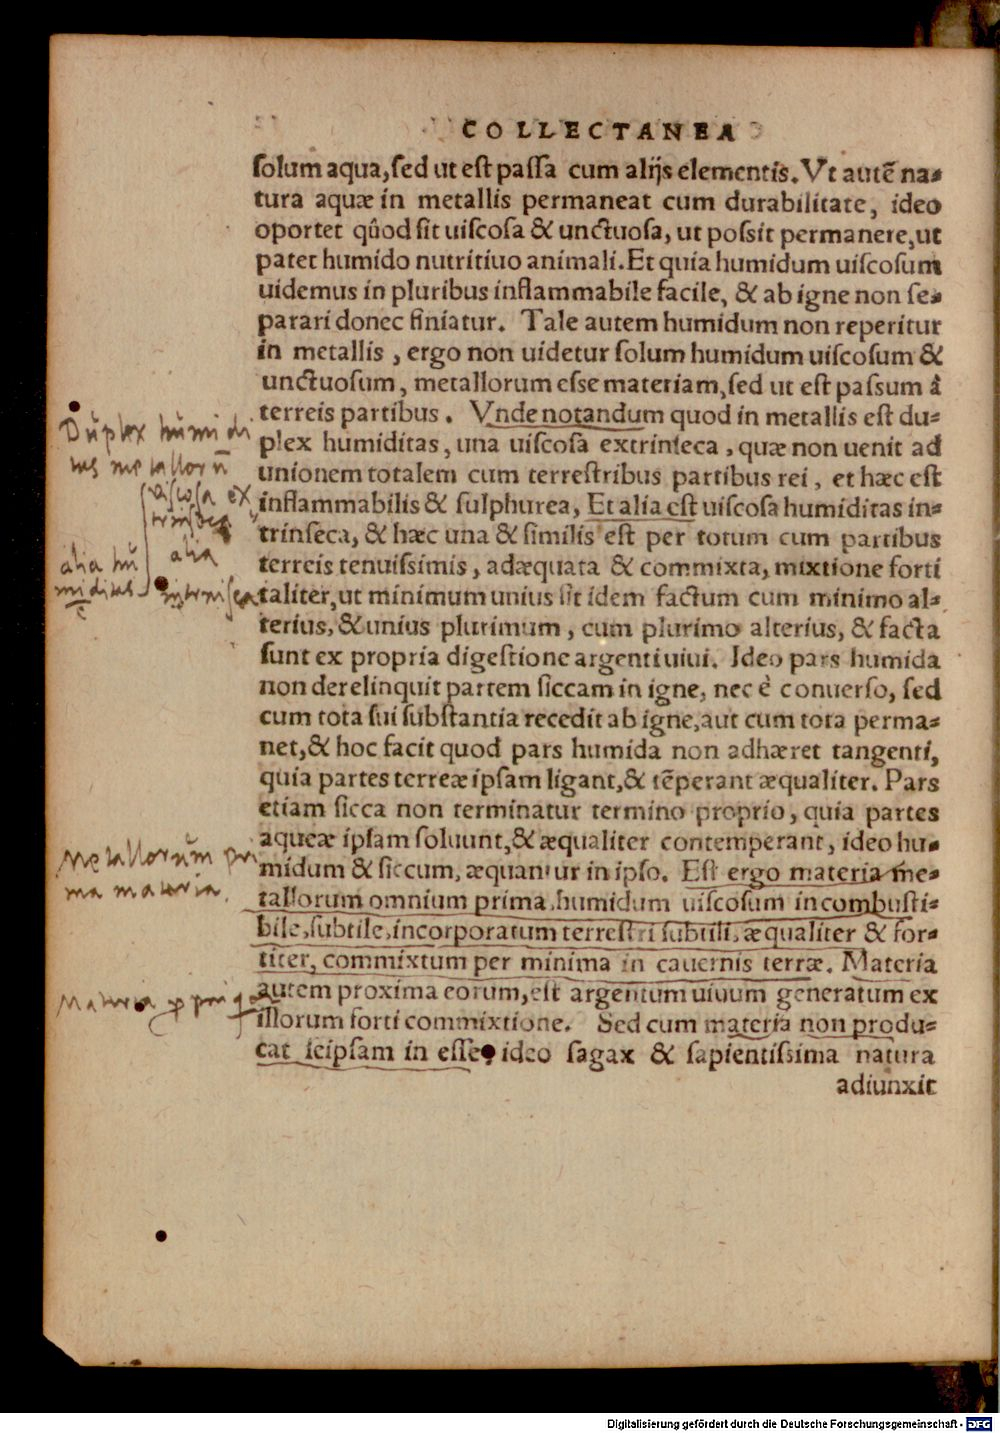 COLLECTANEA
solum aqua, sed ut est passa cum alijs elementis. Vt autē na-
tura aquæ in metallis permaneat cum durabilitate, ideo
oportet quôd sit uiscosa & unctuosa, ut possit permanere, ut
patet humido nutritiuo animali. Et quia humidum uiscosum
uidemus in pluribus inflammabile facile, & ab igne non se-
parari donec finiatur. Tale autem humidum non reperitur
in metallis, ergo non uidetur solum humidum uiscosum &
unctuosum, metallorum esse materiam, sed ut est passum â
terreis partibus. Vnde notandum quod in metallis est du-
plex humiditas, una uiscosa extrinseca, quæ non uenit ad
unionem totalem cum terrestribus partibus rei, et hæc est
inflammabilis & sulphurea, Et alia est uiscosa humiditas in-
trinseca, & hæc una & similis est per totum cum partibus
terreis tenuissimis, adæquata & commixta, mixtione forti
taliter, ut minimum unius sit idem factum cum minimo al-
terius, & unius plurimum, cum plurimo alterius, & facta
sunt ex propria digestione argenti uiui. Ideo pars humida
non derelinquit partem siccam in igne, nec è conuerso, sed
cum tota sui substantia recedit ab igne, aut cum tota perma-
net, & hoc facit quod pars humida non adhæret tangenti,
quia partes terreæ ipsam ligant, & tēperant æqualiter. Pars
etiam sicca non terminatur termino proprio, quia partes
aqueæ ipsam soluunt, & æqualiter contemperant, ideo hu-
midum & siccum, æquantur in ipso. Est ergo materia me-
tallorum omnium prima, humidum uiscosum incombusti-
bile, subtile, incorporatum terrestri subtili, æqualiter & for-
titer, commixtum per minima in cauernis terræ. Materia
autem proxima eorum, est argentum uiuum generatum ex
illorum forti commixtione. Sed cum materia non produ-
cat seipsam in esse, ideo sagax & sapientissima natura
adiunxit
Duplex humidi
tas metallorū
viscosa ex
trinseca
alia
alia hu
miditas
intrinseca
Metallorum pri
ma materia.
Materia
Digitalisierung gefördert durch die Deutsche Forschungsgemeinschaft - DFG